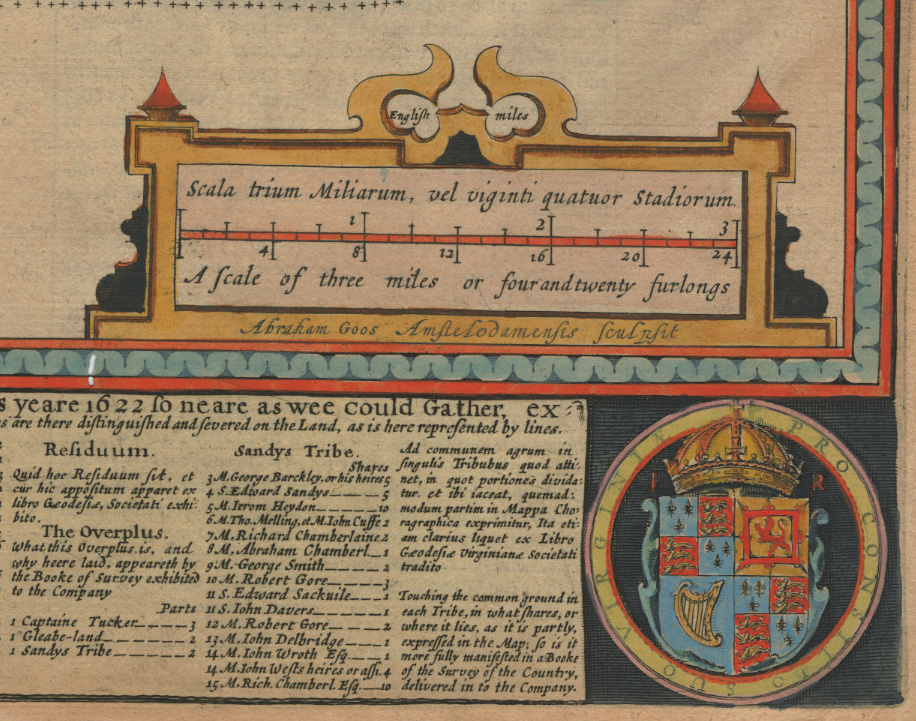 English miles
Scala trium Miliarum, vel viginti quatuor Stadiorum.
1 2 3
4 8 12 16 20 24
A ſcale of three miles or fourandtwenty furlongs
Abraham Goos Amstelodamensis sculpsit
s yeare 1622 ſo neare as wee could Gather, ex-
s are there diſtinguiſhed and ſevered on the Land, as is here repreſented by lines.
Reſiduum.
Quid hoc Reſiduum ſit, et
cur hic appoſitum apparet ex
libro Gæodeſiæ, Societati exhi-
bito.
The Overplus.
What this Overplus is, and
why heere laid, appeareth by
the Booke of Survey exhibited
to the Company
Parts
1 Captaine Tucker 3
1 Gleabe-land 2
1 Sandys Tribe 2
Sandys Tribe.
Shares
3 M. George Barckley, or his heires 5
4 S. Edward Sandys 5
5 M. Ierom Heydon 10
6 M. Tho. Melling, et M. Iohn Cuffe 2
7 M. Richard Chamberlaine 2
8 M. Abraham Chamberl. 1
9 M. George Smith 2
10 M. Robert Gore 3
11 S. Edward Sackuile 1
11 S. Iohn Davers 1
12 M. Robert Gore 2
13 M. Iohn Delbridge 1
14 M. Iohn Wroth Eſq 1
14 M. Iohn Weſts heires or aſſi. 4
15 M. Rich. Chamberl. Eſq 10
Ad communem agrum in
ſingulis Tribubus quod atti-
net, in quot portiones divida-
tur. et ibi iaceat, quemad-
modum partim in Mappa Cho-
ragraphica exprimitur, Ita eti-
am clarius liquet ex Libro
Gæodeſiæ Virginianæ Societati
tradito
Touching the common ground in
each Tribe, in what ſhares, or
where it lies, as it is partly,
expreſſed in the Map; ſo is it
more fully manifeſted in a Booke
of the Survey of the Country,
delivered in to the Company.
PRO CONSILIO SUO VIRGINIÆ
I R